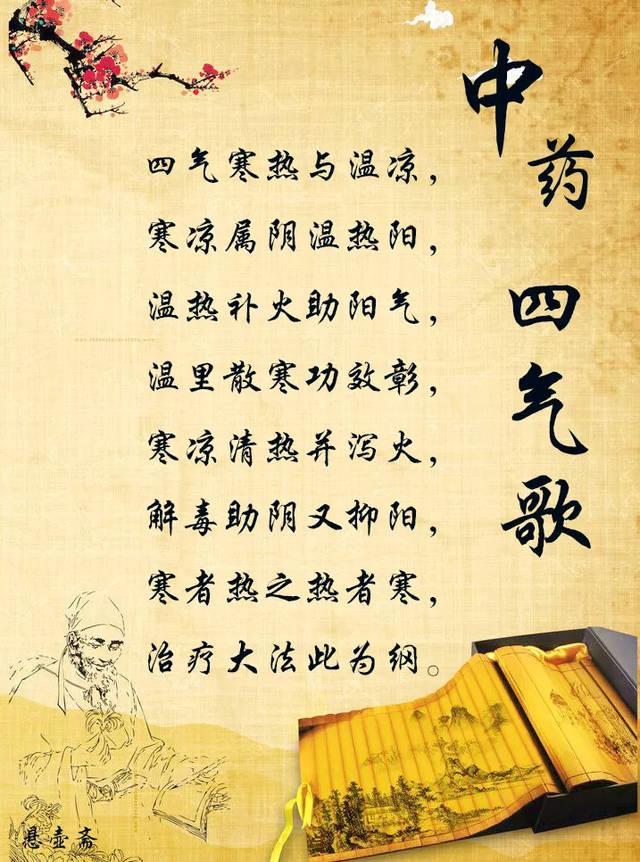 中药四气歌
四气寒热与温凉，
寒凉属阴温热阳，
温热补火助阳气，
温里散寒功效彰，
寒凉清热并泻火，
解毒助阴又抑阳，
寒者热之热者寒，
治疗大法此为纲。
悬壶斋